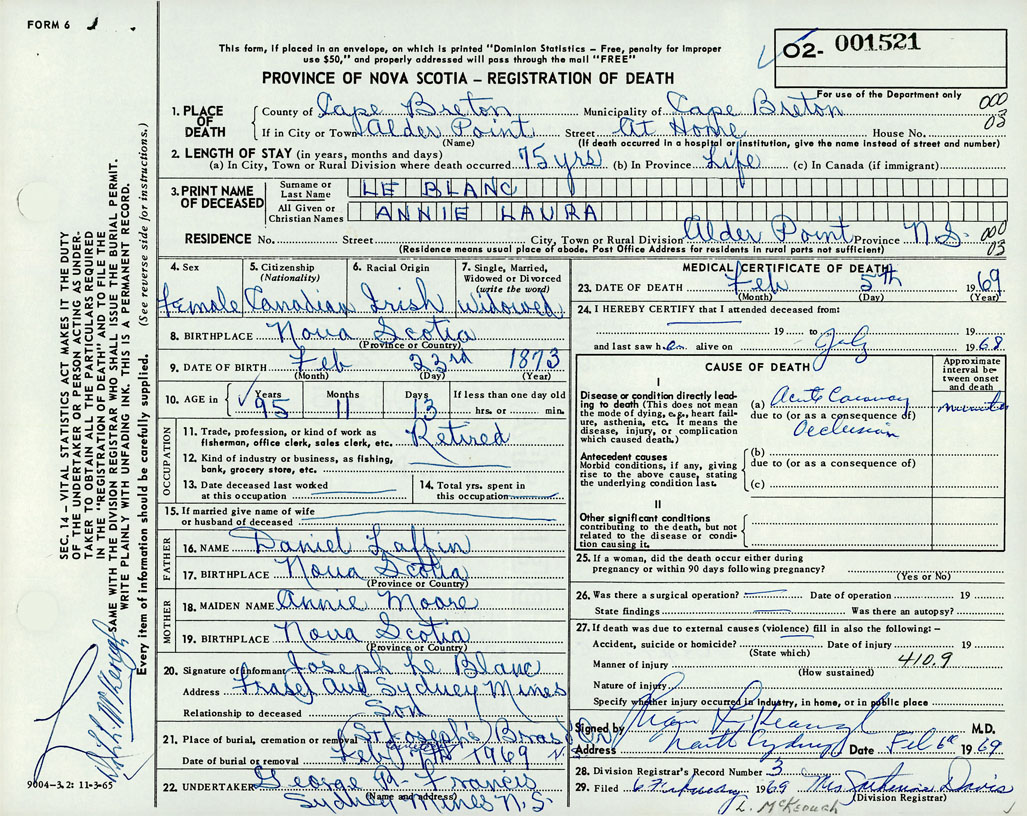 FORM 6
This form, if placed in an envelope, on which is printed "Dominion Statistics – Free, penalty for improper
use $50," and properly addressed will pass through the mail "FREE"
PROVINCE OF NOVA SCOTIA – REGISTRATION OF DEATH
02- 001521
For use of the Department only
1. PLACE OF DEATH
County of Cape Breton Municipality of Cape Breton 000
If in City or Town Alder Point Street At Home House No. 03
(Name) (If death occurred in a hospital or institution, give the name instead of street and number)
2. LENGTH OF STAY (in years, months and days)
(a) In City, Town or Rural Division where death occurred 75 yrs (b) In Province Life (c) In Canada (if immigrant)
3. PRINT NAME OF DECEASED
Surname or Last Name LE BLANC
All Given or Christian Names ANNIE LAURA
RESIDENCE No. Street City, Town or Rural Division Alder Point Province N.S. 000 03
(Residence means usual place of abode. Post Office Address for residents in rural parts not sufficient)
4. Sex
female
5. Citizenship (Nationality)
Canadian
6. Racial Origin
Irish
7. Single, Married, Widowed or Divorced (write the word)
Widowed
8. BIRTHPLACE Nova Scotia
(Province or Country)
9. DATE OF BIRTH Feb 23rd 1873
(Month) (Day) (Year)
10. AGE in Years 95 Months 11 Days 13 If less than one day old
hrs. or min.
OCCUPATION
11. Trade, profession, or kind of work as
fisherman, office clerk, sales clerk, etc. Retired
12. Kind of industry or business, as fishing,
bank, grocery store, etc.
13. Date deceased last worked
at this occupation
14. Total yrs. spent in
this occupation
15. If married give name of wife
or husband of deceased
FATHER
16. NAME Daniel Laffin
17. BIRTHPLACE Nova Scotia
(Province or Country)
MOTHER
18. MAIDEN NAME Annie Moore
19. BIRTHPLACE Nova Scotia
(Province or Country)
20. Signature of informant Joseph Le Blanc
Address Fraser Ave Sydney Mines
Relationship to deceased Son
21. Place of burial, cremation or removal St Joseph's Bras D'Or N.S.
Date of burial or removal Feb 7th 1969
22. UNDERTAKER George M. Francis
(Name and address)
Sydney Mines N.S.
MEDICAL CERTIFICATE OF DEATH
23. DATE OF DEATH Feb 5th 1969
(Month) (Day) (Year)
24. I HEREBY CERTIFY that I attended deceased from:
19 to 19
and last saw her alive on July 1968
CAUSE OF DEATH
Approximate interval between onset and death
I
Disease or condition directly leading
to death (This does not mean
the mode of dying, e.g., heart failure,
asthenia, etc. It means the
disease, injury, or complication
which caused death.)
(a) Acute Coronary minutes
due to (or as a consequence of)
Occlusion
Antecedent causes
Morbid conditions, if any, giving
rise to the above cause, stating
the underlying condition last.
(b)
due to (or as a consequence of)
(c)
II
Other significant conditions
contributing to the death, but not
related to the disease or condition
causing it.
25. If a woman, did the death occur either during
pregnancy or within 90 days following pregnancy?
(Yes or No)
26. Was there a surgical operation? Date of operation 19
State findings Was there an autopsy?
27. If death was due to external causes (violence) fill in also the following: –
Accident, suicide or homicide? Date of injury 19
(State which)
Manner of injury 410.9
(How sustained)
Nature of injury
Specify whether injury occurred in industry, in home, or in public place
Signed by M.D.
Address North Sydney Date Feb 6th 1969
28. Division Registrar's Record Number 3
29. Filed 6 February 1969 Mrs Catherine Davis
(Division Registrar)
L. McKeough
SEC. 14 – VITAL STATISTICS ACT MAKES IT THE DUTY
OF THE UNDERTAKER OR PERSON ACTING AS UNDERTAKER
TO OBTAIN ALL THE PARTICULARS REQUIRED
IN THE "REGISTRATION OF DEATH" AND TO FILE THE
SAME WITH THE DIVISION REGISTRAR WHO SHALL ISSUE THE BURIAL PERMIT.
WRITE PLAINLY WITH UNFADING INK. THIS IS A PERMANENT RECORD.
Every item of information should be carefully supplied. (See reverse side for instructions.)
9004-3.2: 11-3-65